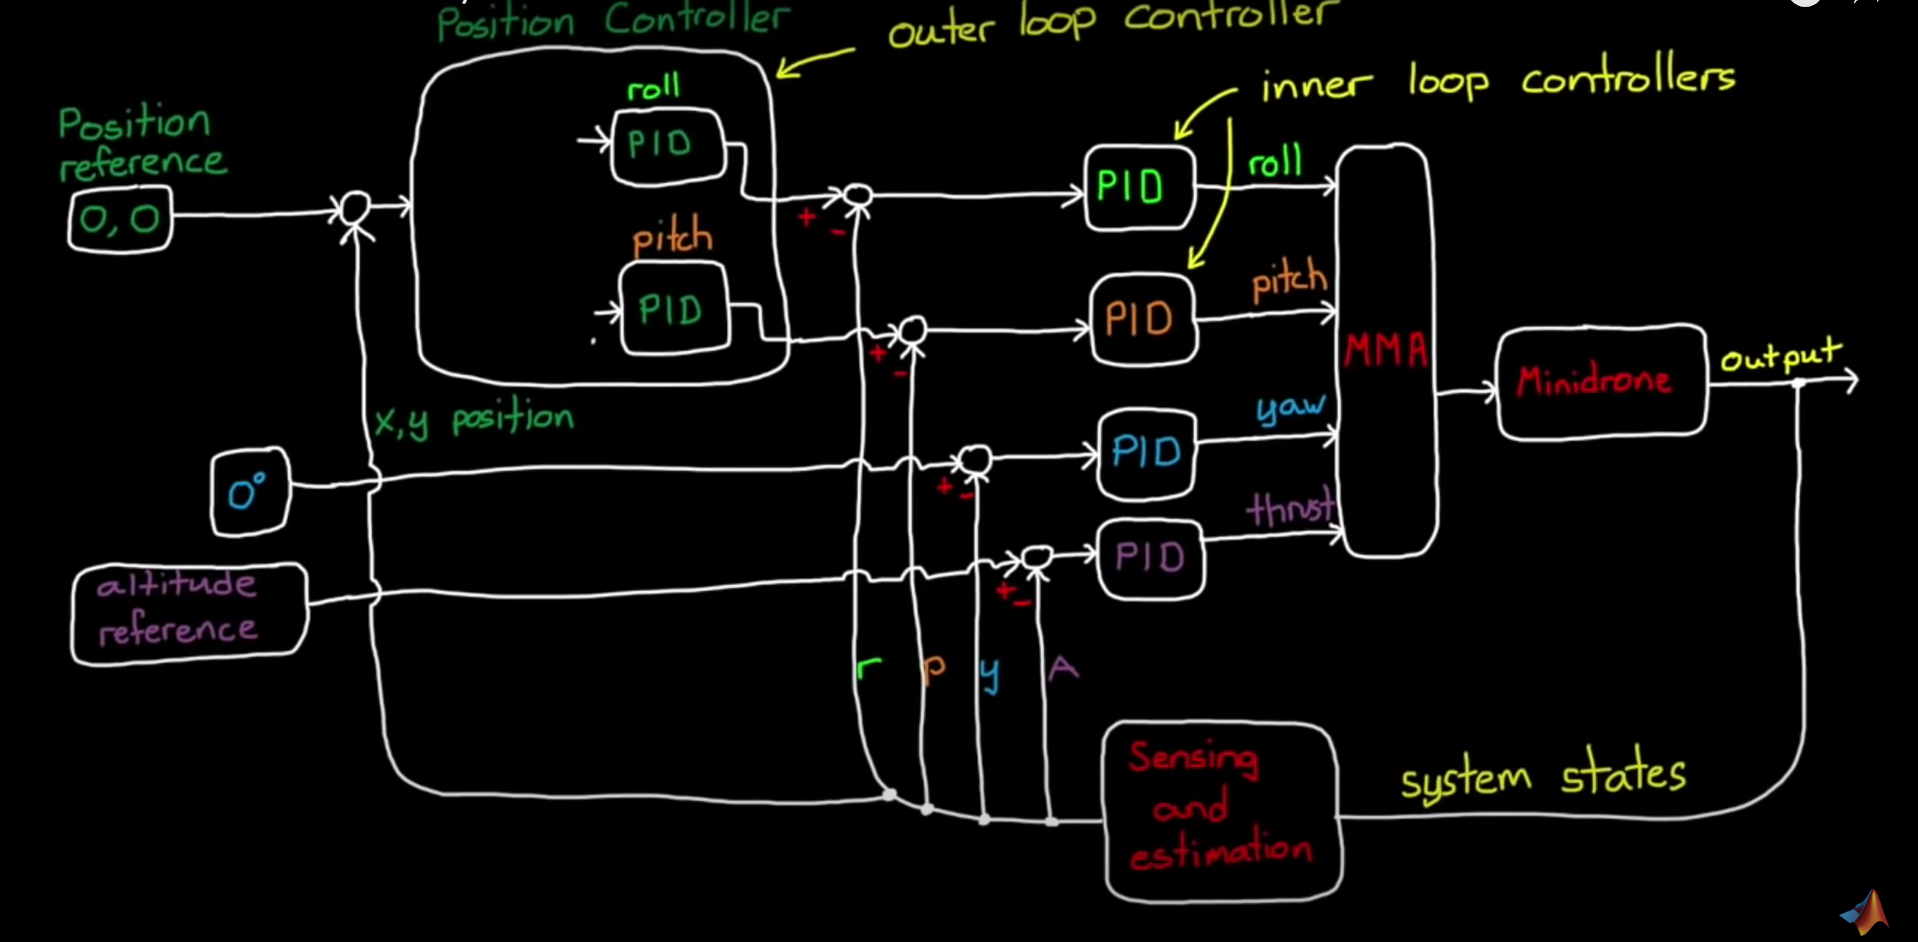 Position Controller
outer loop controller
inner loop controllers
Position
reference
0,0
roll
PID
pitch
PID
+
-
+
-
PID
roll
PID
pitch
MMA
Minidrone
output
x,y position
0°
+
-
PID
yaw
altitude
reference
+
-
PID
thrust
r
p
y
A
Sensing
and
estimation
system states